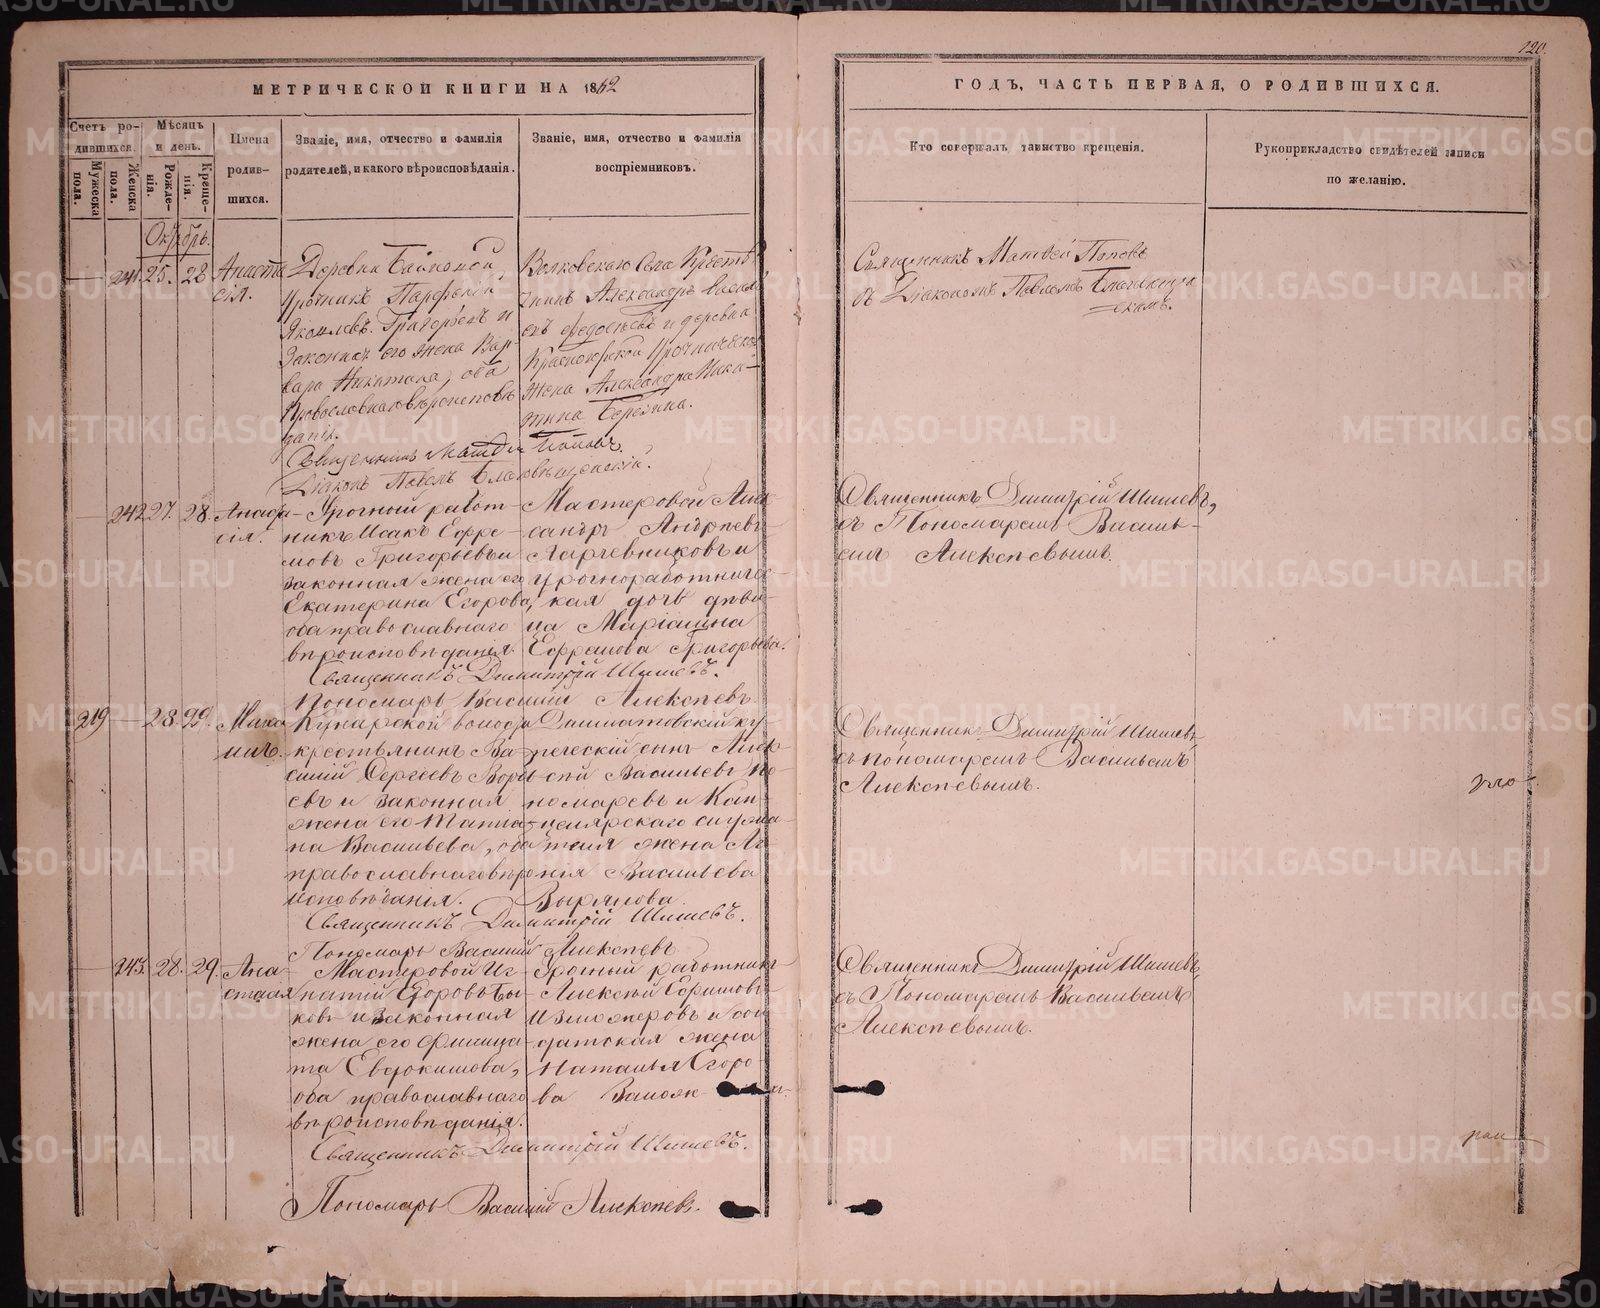 120.
МЕТРИЧЕСКОЙ КНИГИ НА 1862
ГОДЪ, ЧАСТЬ ПЕРВАЯ, О РОДИВШИХСЯ.
Счетъ ро-
дившихся.
Мужеска
пола.
Женска
пола.
Мѣсяцъ
и день.
Рожде-
нія.
Креще-
нія.
Имена
родив-
шихся.
Званіе, имя, отчество и фамилія
родителей, и какого вѣроисповѣданія.
Званіе, имя, отчество и фамилія
воспріемниковъ.
Кто совершалъ таинство крещенія.
Рукоприкладство свидѣтелей записи
по желанію.
241. 25. 28
Анаста
сія.
Деревни
Урочникъ Парфеній
Яковлевъ Григорьевъ и
Законная его жена Вар-
вара Никитина, оба
Православнаго вѣроисповѣ
данія.
Священникъ Матвей Поповъ.
Діаконъ Павелъ Благовѣщенскій.
Волковскаго Села Крестья
нинъ Александръ
Федосѣевъ и деревни
Красноярской
жена Александра Ники-
тина Березина.
Священникъ Матвей Поповъ
съ Діакономъ Павломъ
242. 27. 28.
Урочный работ-
никъ Исакъ Ефре-
мовъ Григорьевъ и
законная жена его
Екатерина Егорова,
оба православнаго
вѣроисповѣданія.
Священникъ Димитрій Шишевъ.
Пономарь Василій Алексѣевъ
Мастеровой Алек
сандръ Андреевъ
Ларчевниковъ и
урочноработничес-
кая дочь дѣви-
ца Маріамна
Ефремова Григорьева.
Священникъ Димитрій Шишевъ,
съ Пономаремъ Василь-
емъ Алексѣевымъ.
219 28. 29.
Миха
илъ.
волости
крестьянинъ Ва-
силій Сергѣевъ
евъ и законная
жена его Татья-
на Васильева, оба
православнаго вѣро
исповѣданія.
Священникъ Димитрій Шишевъ.
Пономарь Василій Алексѣевъ
Далматовскій ку-
печескій сынъ Алек-
сѣй Васильевъ По-
номаревъ и Кан-
целярскаго служи-
теля жена
Васильева
Вырянова.
Священникъ Димитрій Шишевъ
съ пономаремъ Васильемъ
Алексѣевымъ.
243. 28. 29.
Ана
стасія
Мастеровой Иг-
натій Егоровъ Бы-
ковъ и законная
жена его Филица-
та Евдокимова,
оба православнаго
вѣроисповѣданія.
Священникъ Димитрій Шишевъ.
Пономарь Василій Алексѣевъ.
Урочный работникъ
Алексѣй Ефимовъ
Изможеровъ и сол
датская жена
Наталья Егоро-
ва
Священникъ Димитрій Шишевъ
съ Пономаремъ Васильемъ
Алексѣевымъ.
METRIKI.GASO-URAL.RU